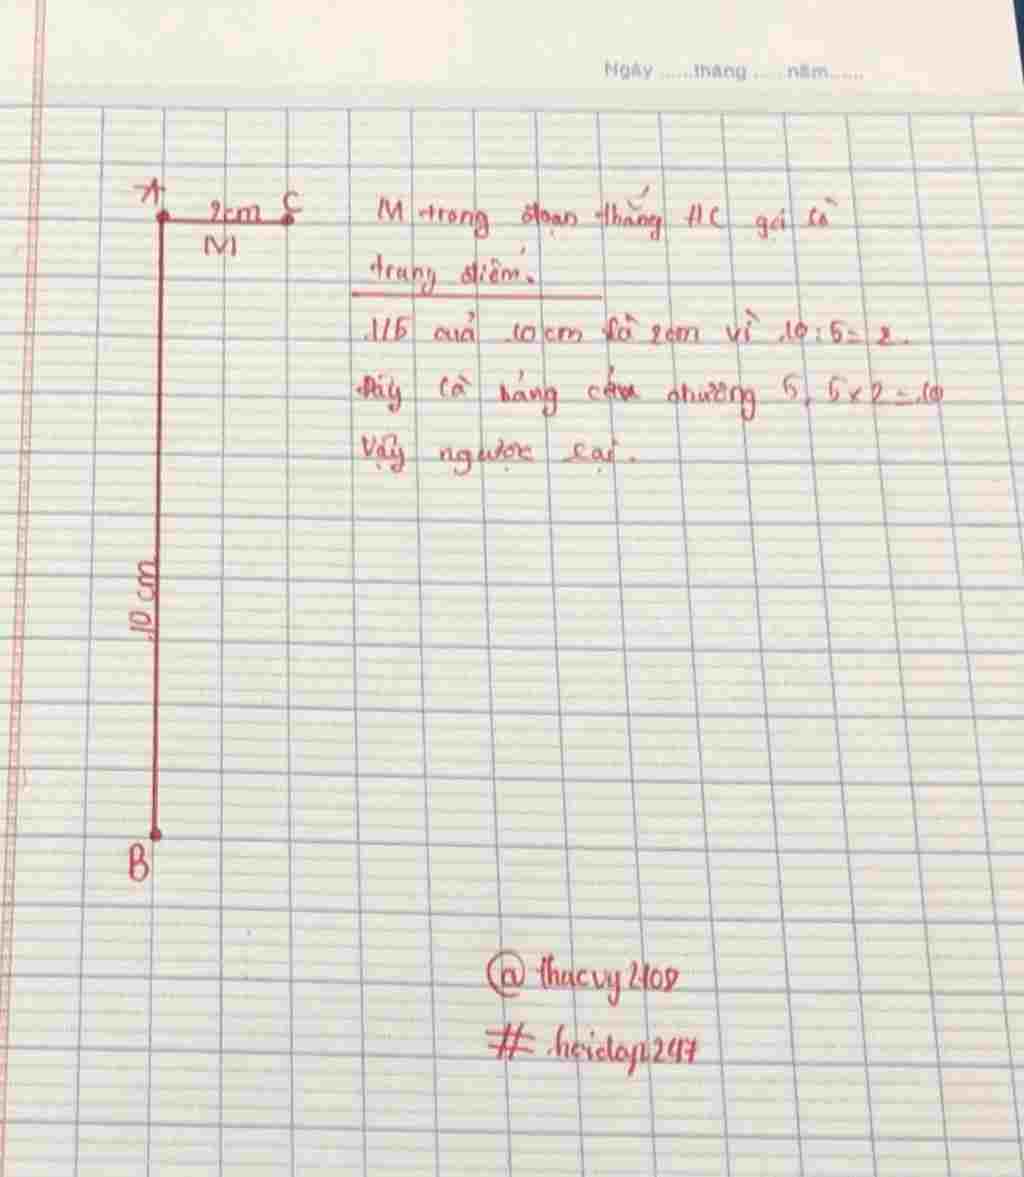 Ngày ......tháng .....năm......
A 2cm C
M
M trong đoạn thẳng AC gọi là
trung điểm.
1/5 của 10cm là 2cm vì 10:5=2.
Đây là bảng cửu chương 5, 5x2=10
Vậy ngược lại.
10 cm
B
@thucvy2108
#hoidap247